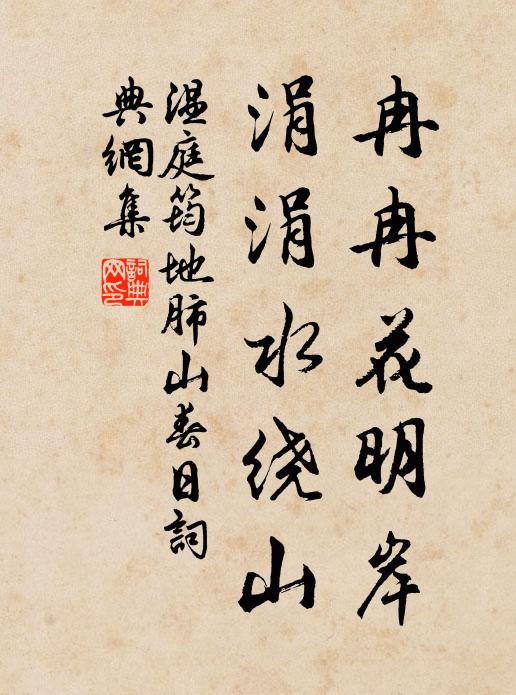 冉冉花明岸
涓涓水绕山
温庭筠地肺山春日詞
典網集
詞典网印